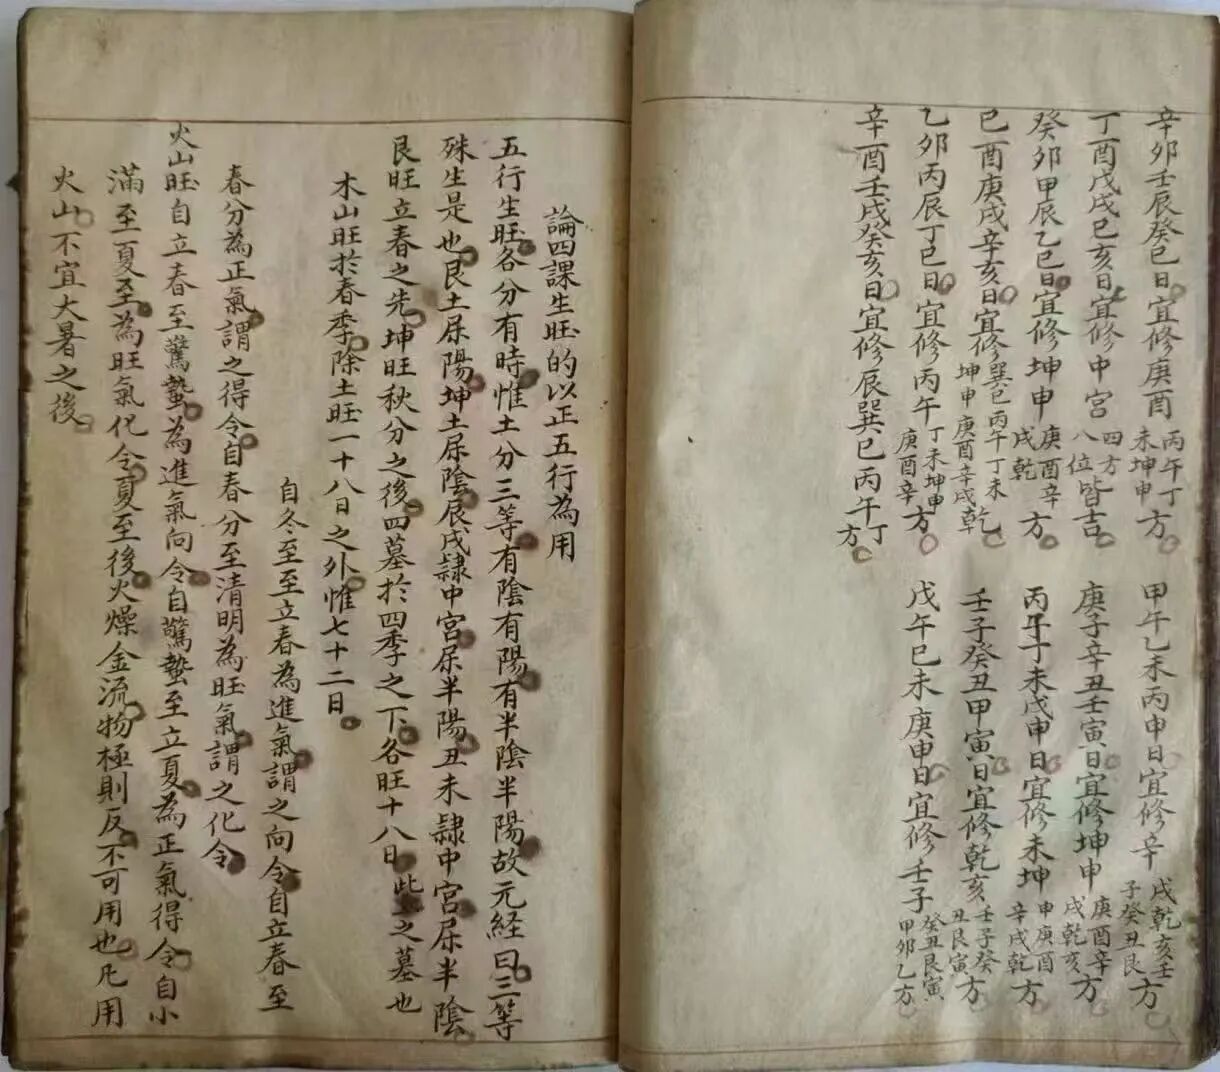 辛卯壬辰癸巳日宜修庚酉丙午丁未坤申方
甲午乙未丙申日宜修辛戌乾亥壬子癸丑艮方
丁酉戊戌己亥日宜修中宮四方八位皆吉
庚子辛丑壬寅日宜修坤申庚酉辛戌乾亥方
癸卯甲辰乙巳日宜修坤申庚酉辛戌乾方
丙午丁未戊申日宜修未坤申庚酉辛戌乾方
己酉庚戌辛亥日宜修巽巳丙午丁未坤申庚酉辛戌乾
壬子癸丑甲寅日宜修乾亥壬子癸丑艮寅方
乙卯丙辰丁巳日宜修丙午丁未坤申庚酉辛方
戊午巳未庚申日宜修壬子癸丑艮寅甲卯乙方
辛酉壬戌癸亥日宜修辰巽巳丙午丁方
論四課生旺的以正五行為用
五行生旺各分有時惟土分三等有陰有陽有半陰半陽故元経曰三等
殊生是也艮土屌陽坤土屌陰辰戌隷中宮屌半陽丑未隷中宮屌半陰
艮旺立春之先坤旺秋分之後四墓於四季之下各旺十八日此土之墓也
木山旺於春季除土旺一十八日之外惟七十二日
自冬至至立春為進氣謂之向令自立春至
春分為正氣謂之得令自春分至清明為旺氣謂之化令
火山旺自立春至驚蟄為進氣向令自驚蟄至立夏為正氣得令自小
滿至夏至為旺氣化令夏至後火燥金流物極則反不可用也凡用
火山不宜大暑之後